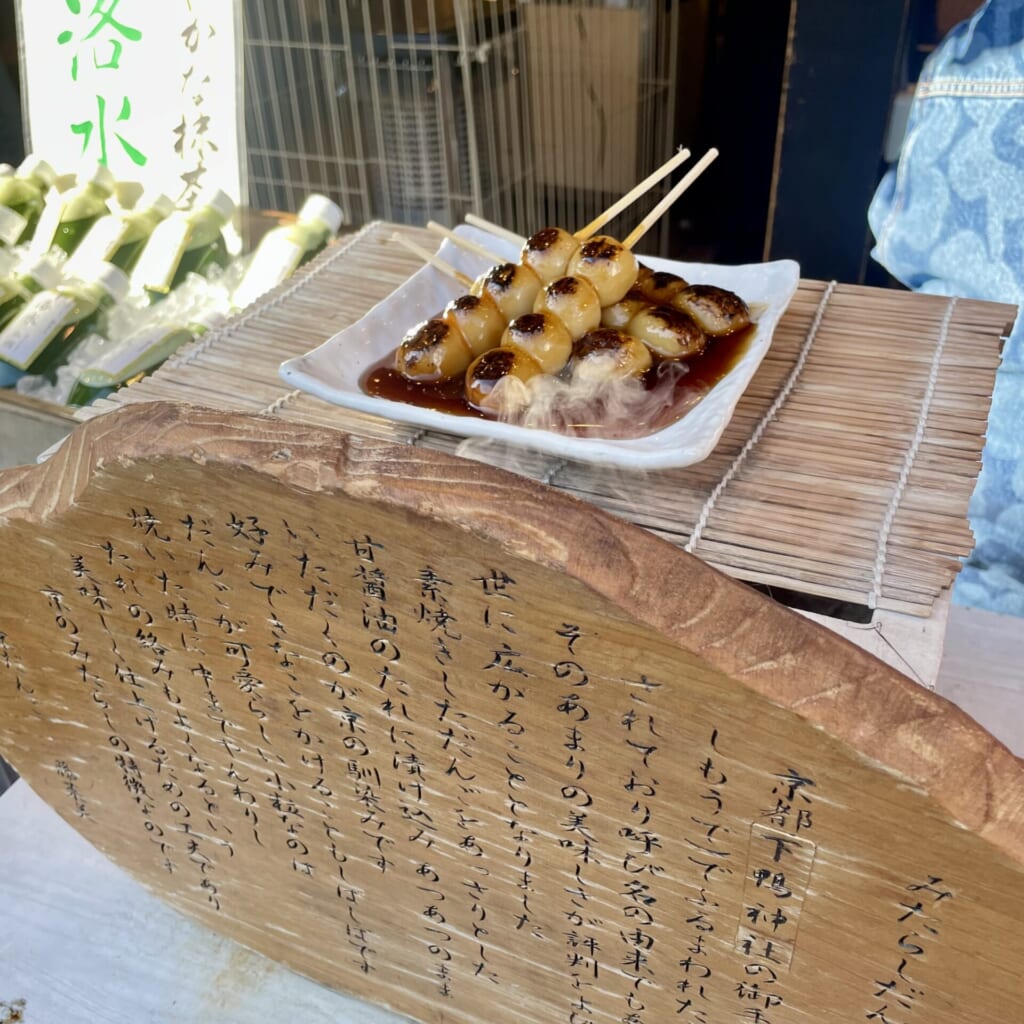 みたらしだん
京都下鴨神社の御手
しもうでてふるまわれた
されており呼び名の由来でもあ
そのあまりの美味しさが評判をよび
世に広がることとなりました
素焼きしただんごをあっさりとした
甘醤油のたれに漬け込みあつあつのまま
いただくのが京の馴染みです
好みできなこをかけることもしばしばです
だんごが可愛らしい小粒なのは
焼いた時にやきもちやんわりし
たれの絡みもよくなるという
美味しく仕上げるための工夫であり
京のみたらしの特徴なのです
洛水
かな抹茶